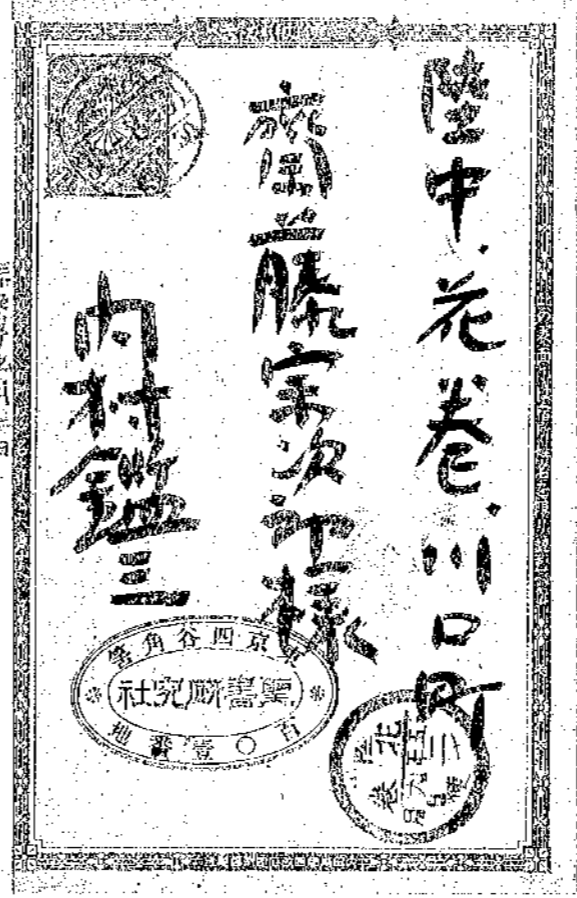 陸中、花巻、川口町
齋藤宗次郎様
内村鑑三
京四谷角筈
聖書研究社
百〇壹番地